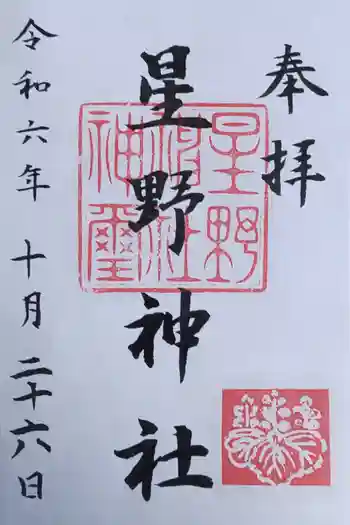 奉拝
星野神社
星野神社神璽
令和六年 十月 二十六日